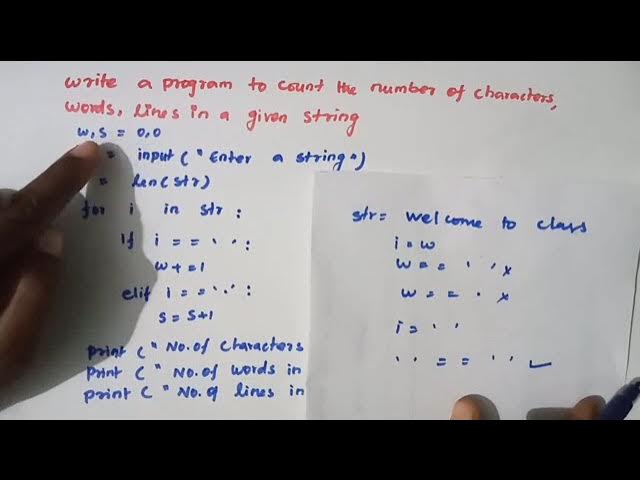 write a program to count the number of characters,
words, lines in a given string
w,s = 0,0
= input ("Enter a string")
= len(str)
for i in str :
if i == ' ' :
w+=1
elif i == '.' :
s = s+1
print ("No. of characters
print ("No. of words in
print ("No. of lines in
str= welcome to class
i = w
w == ' ' x
w == . x
i = ' '
' ' == ' ' ✓